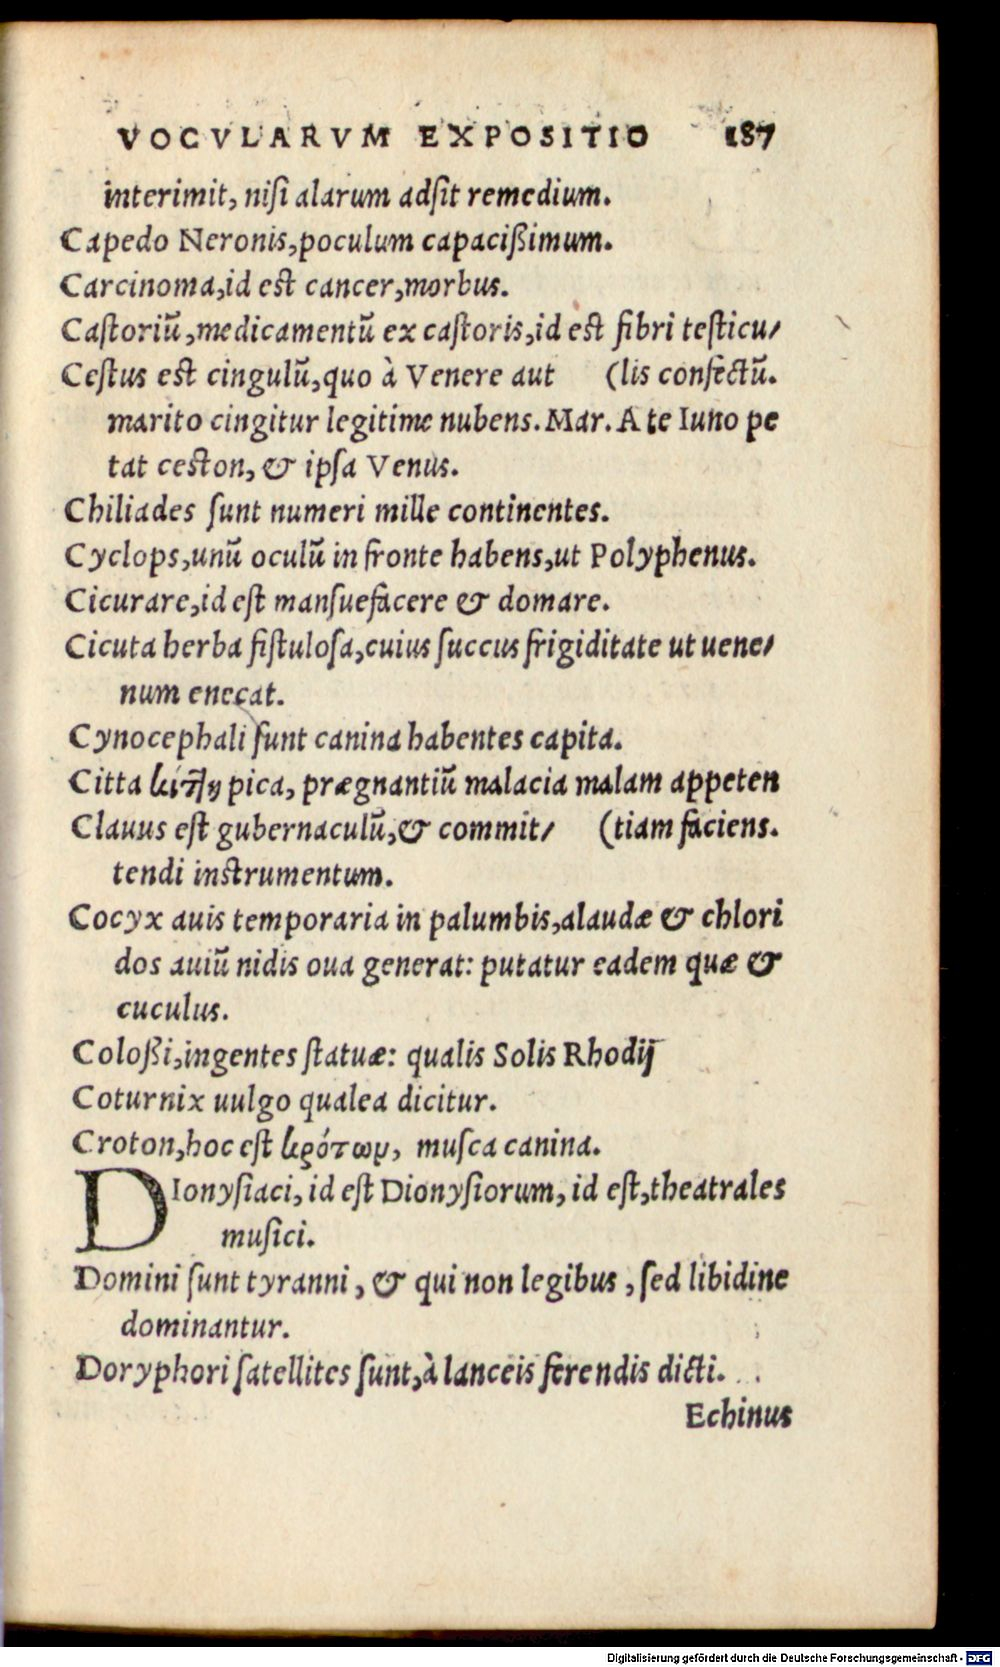 VOCVLARVM EXPOSITIO 187
interimit, niſi alarum adſit remedium.
Capedo Neronis, poculum capacißimum.
Carcinoma, id est cancer, morbus.
Caſtoriũ, medicamentũ ex caſtoris, id eſt fibri teſticu/
Ceſtus eſt cingulũ, quo à Venere aut (lis confectũ.
marito cingitur legitime nubens. Mar. A te Iuno pe
tat ceston, & ipſa Venus.
Chiliades ſunt numeri mille continentes.
Cyclops, unũ oculũ in fronte habens, ut Polyphenus.
Cicurare, id eſt manſuefacere & domare.
Cicuta herba fiſtuloſa, cuius ſuccus frigiditate ut uene/
num enecat.
Cynocephali ſunt canina habentes capita.
Citta pica, prægnantiũ malacia malam appeten
Clauus eſt gubernaculũ, & commit/ (tiam faciens.
tendi instrumentum.
Cocyx auis temporaria in palumbis, alaudæ & chlori
dos auiũ nidis oua generat: putatur eadem quæ &
cuculus.
Coloßi, ingentes ſtatuæ: qualis Solis Rhodij
Coturnix uulgo qualea dicitur.
Croton, hoc eſt κρότων, muſca canina.
DIonyſiaci, id eſt Dionyſiorum, id eſt, theatrales
muſici.
Domini ſunt tyranni, & qui non legibus, ſed libidine
dominantur.
Doryphori ſatellites ſunt, à lanceis ferendis dicti.
Echinus
Digitalisierung gefördert durch die Deutsche Forschungsgemeinschaft - DFG